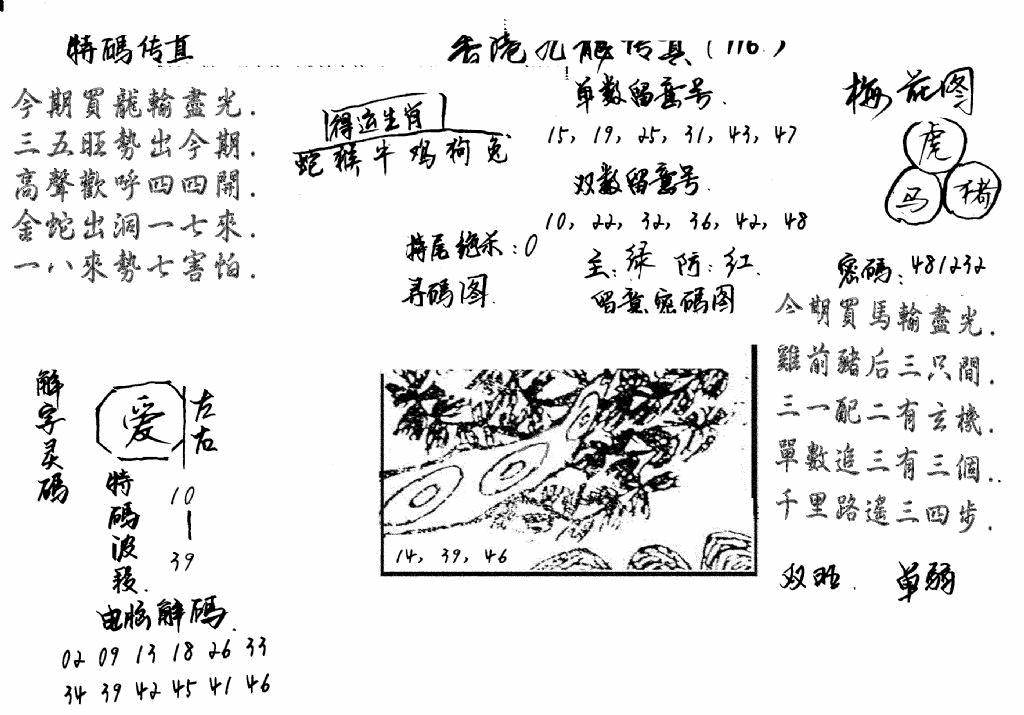 特碼传真
今期買龍輸盡光.
三五旺勢出今期.
高聲歡呼四四開.
金蛇出洞一七來.
一八來勢七害怕.
香港九龍传真(116)
得运生肖
蛇猴牛鸡狗兔
特尾绝杀:0
寻碼图
单数留意号.
15, 19, 25, 31, 43, 47
双数留意号.
10, 22, 32, 36, 42, 48
主:绿 防:红.
留意密碼图
14, 39, 46
梅花图
虎
马 猪
密碼:481232
今期買馬輸盡光.
雞前豬后三只間.
三一配二有玄機.
單數追三有三個..
千里路遙三四步.
双旺. 单弱
解字灵碼
爱
左右
特碼波段.
10—39
电脑解碼.
02 09 13 18 26 33
34 39 42 45 41 46